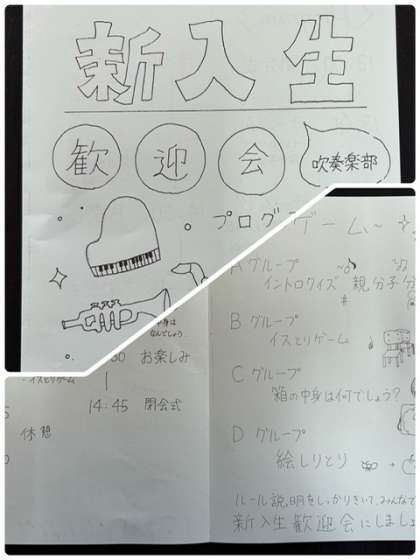 新入生
歓迎会
吹奏楽部
プログ
ゲーム〜
Aグループ
イントロクイズ 親分子分
Bグループ
イスとりゲーム
Cグループ
箱の中身は何でしょう?
Dグループ
絵しりとり
ルール説明をしっかりきいて、みんなで
新入生歓迎会にしましょ
なんでしょう
30 お楽しみ
・イスとりゲーム
14:45 閉会式
休憩